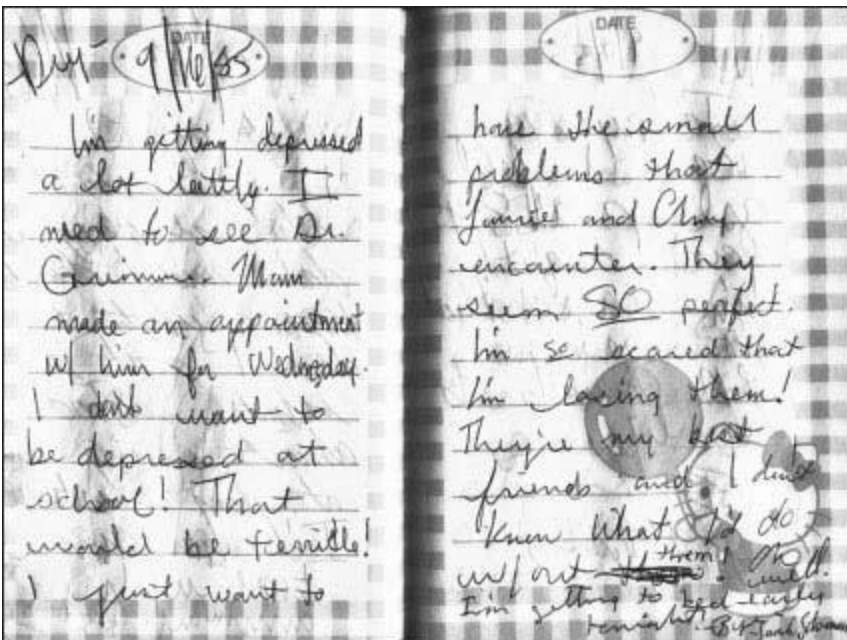 DATE
9/16/85
I'm gitting depressed
a lot lattly. I
need to see Dr.
Mom
made an appointment
w/ him for Wednesday.
I dont want to
be depressed at
school! That
would be terrible!
I just want to
DATE
have the small
problems that
and
encounter. They
seem SO perfect.
I'm so scared that
I'm losing them!
They're my best
friends and I don't
know what I'd do
w/out them! well.
I'm getting to bed early
tonight!